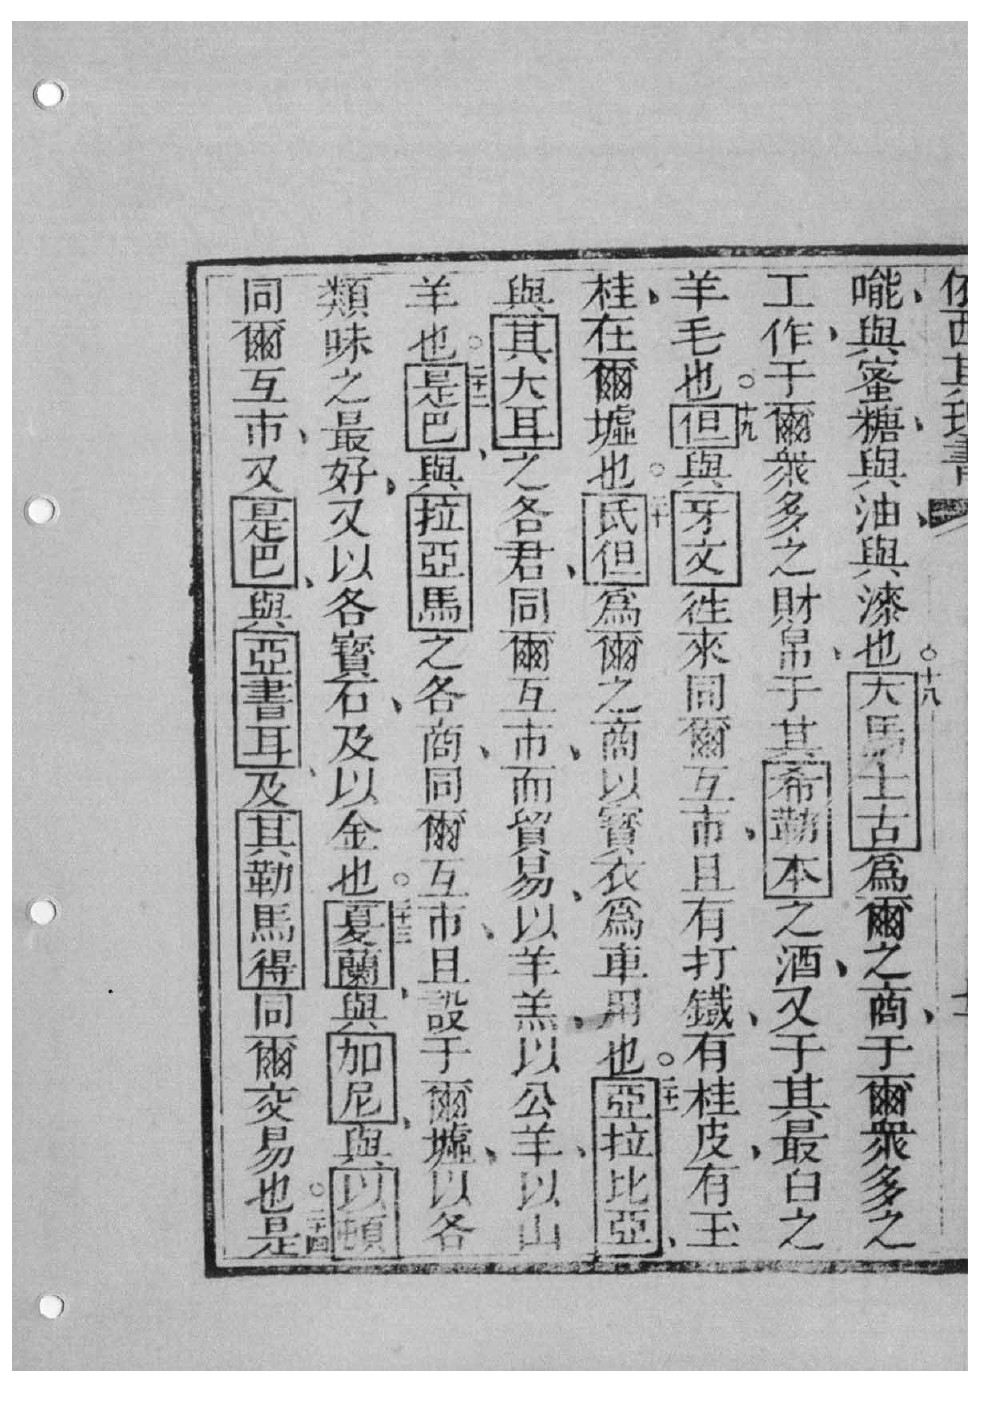 依西其理書
𠹌與蜜糖、與油、與漆也。十八大馬士古爲爾之商、于爾衆多之
工作、于爾衆多之財帛、于其希勒本之酒、又于其最白之
羊毛也。十九但與牙文徃來同爾互市、且有打鐵、有桂皮、有玉
桂、在爾墟也。二十氐但爲爾之商以寶衣爲車用也。二十一亞拉比亞、
與其大耳之各君、同爾互市、而貿易、以羊羔、以公羊、以山
羊也。二十二是巴、與拉亞馬之各商、同爾互市、且設于爾墟、以各
類味之最好、又以各寶石、及以金也。二十三夏蘭、與加尼、與以頓
同爾互市、又是巴、與亞書耳、及其勒馬得同爾交易也。二十四是